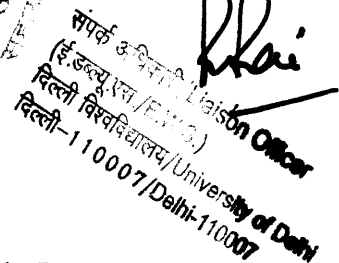 R Rai
संपर्क अधिकारी/Liaison Officer
(ई.डब्ल्यू.एस./E.W.S.)
दिल्ली विश्वविद्यालय/University of Delhi
दिल्ली-110007/Delhi-110007